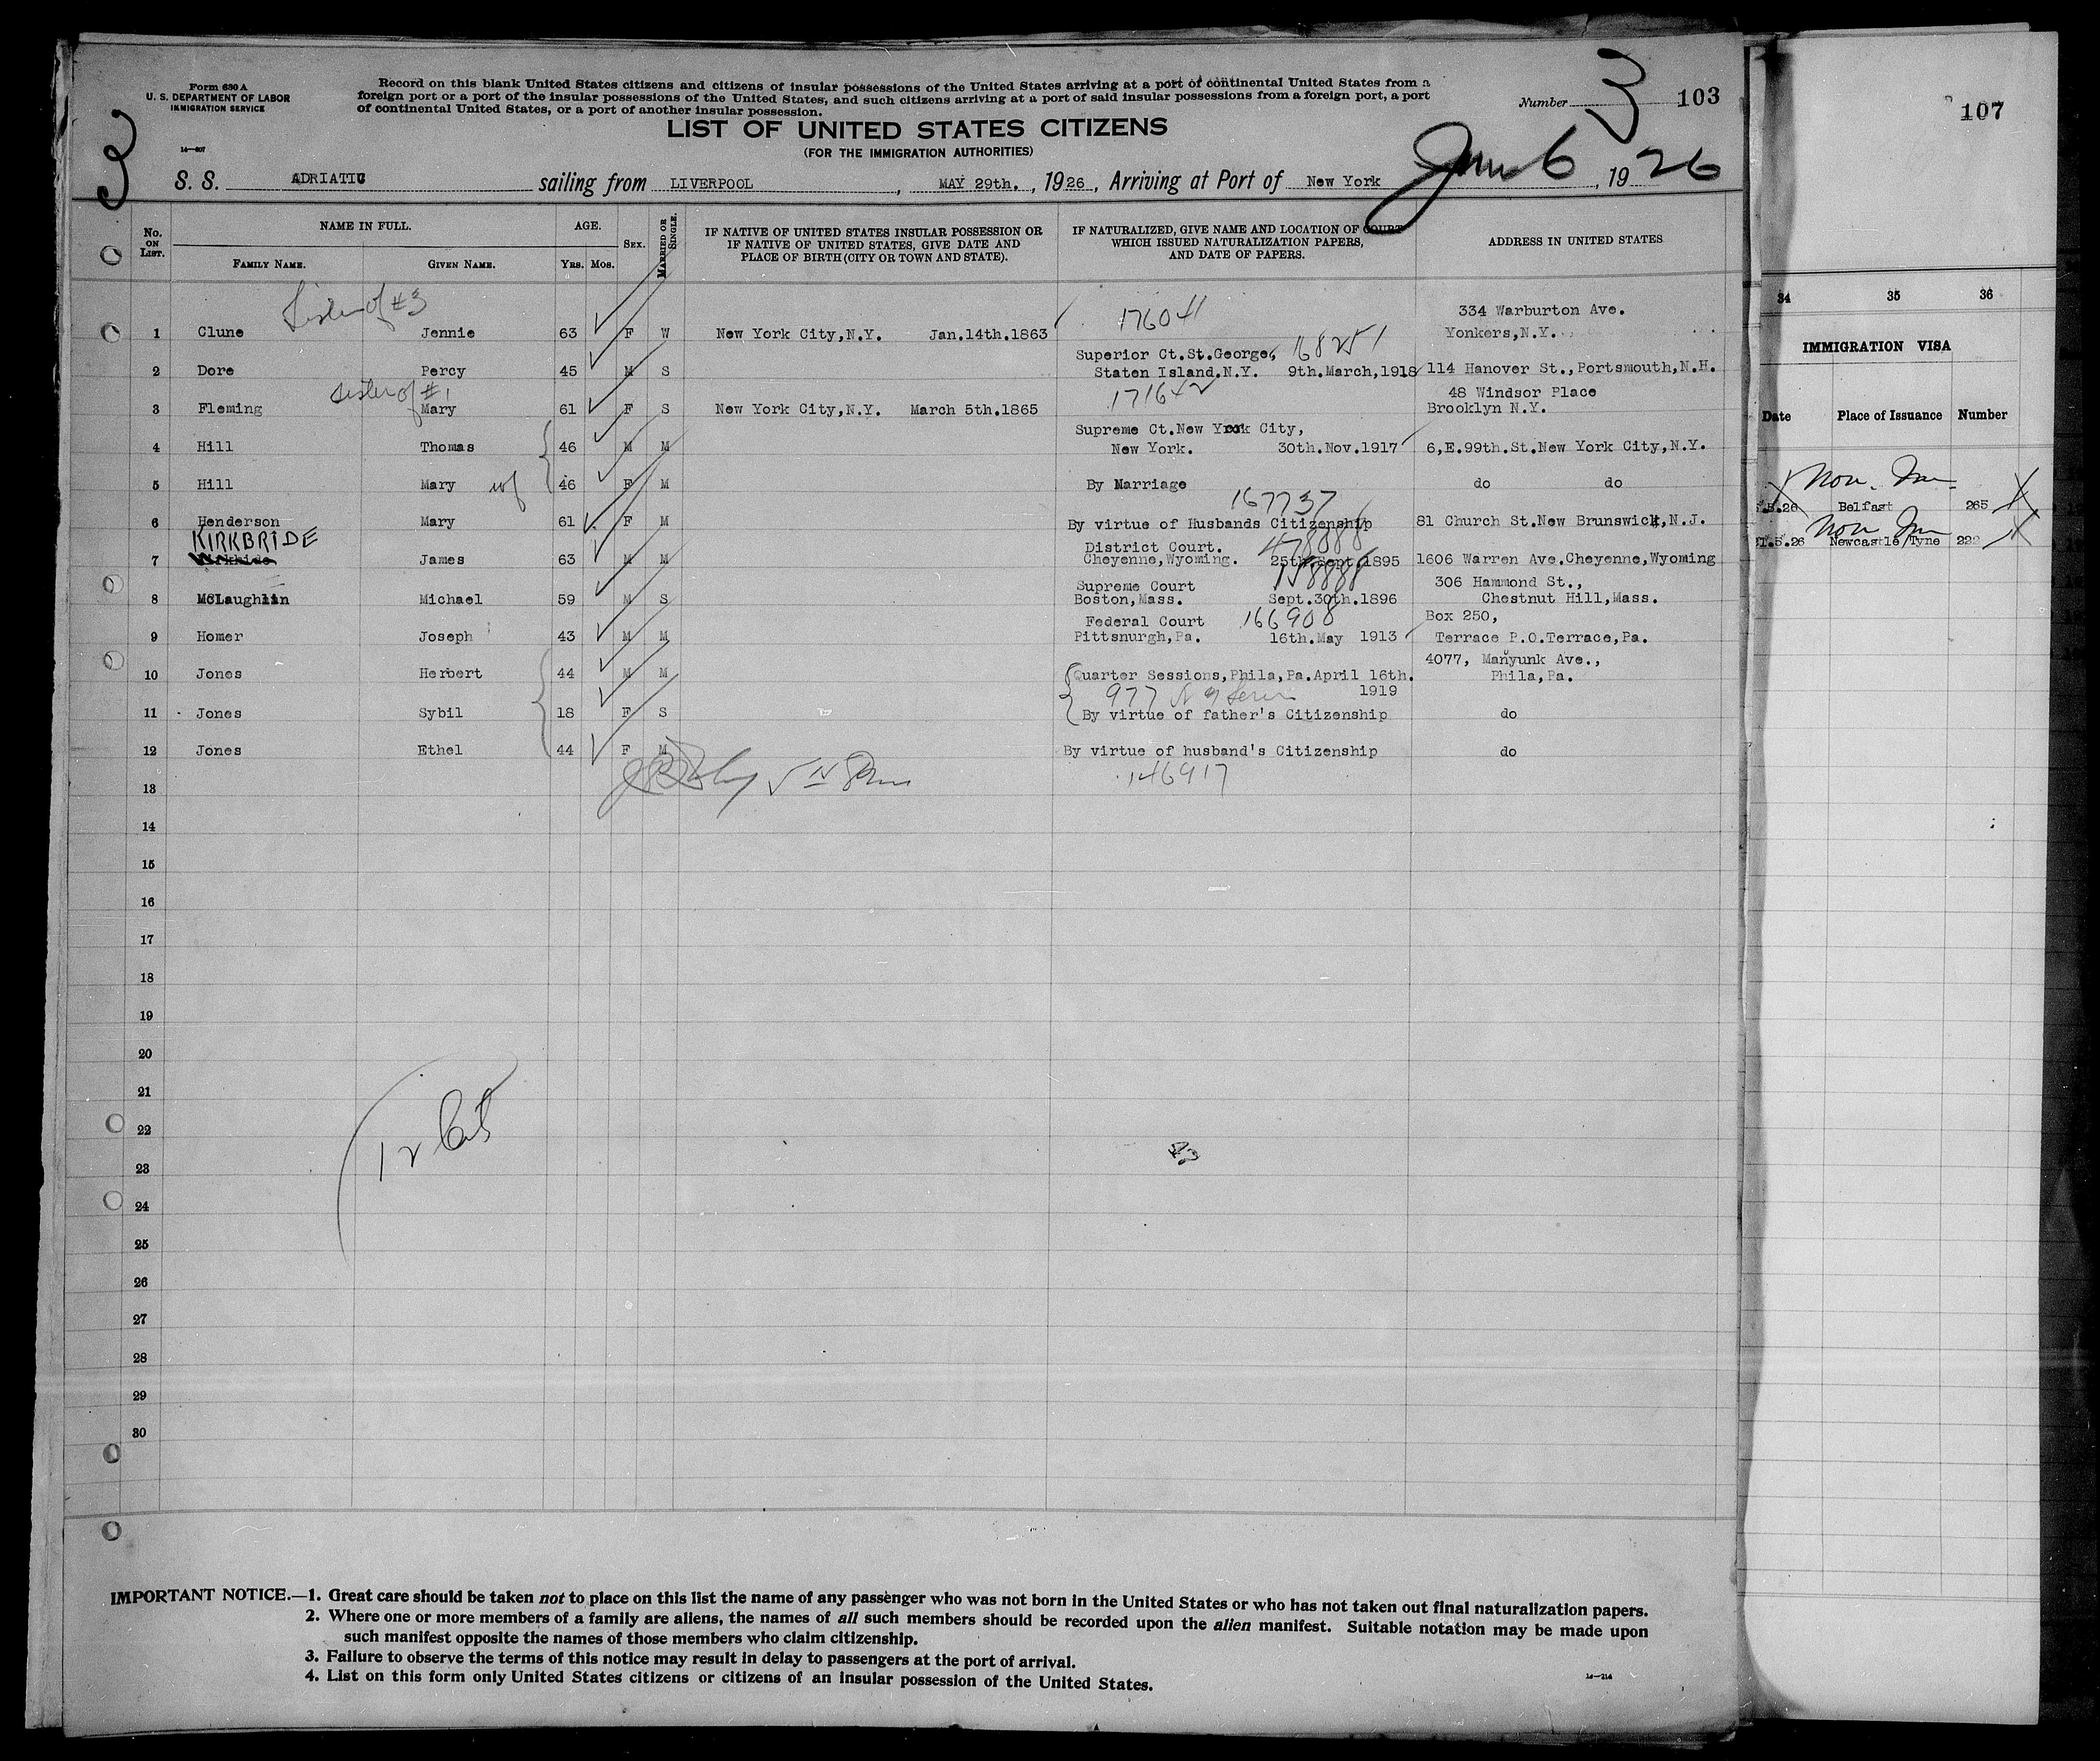 Form 630 A
U. S. DEPARTMENT OF LABOR
IMMIGRATION SERVICE
14—607
3
Record on this blank United States citizens and citizens of insular possessions of the United States arriving at a port of continental United States from a
foreign port or a port of the insular possessions of the United States, and such citizens arriving at a port of said insular possessions from a foreign port, a port
of continental United States, or a port of another insular possession.
Number 3 103
LIST OF UNITED STATES CITIZENS
(FOR THE IMMIGRATION AUTHORITIES)
S. S. ADRIATIC sailing from LIVERPOOL, MAY 29th., 1926, Arriving at Port of New York June 6, 1926
No. ON LIST. NAME IN FULL. FAMILY NAME. GIVEN NAME. AGE. YRS. MOS. SEX. MARRIED OR SINGLE. IF NATIVE OF UNITED STATES INSULAR POSSESSION OR IF NATIVE OF UNITED STATES, GIVE DATE AND PLACE OF BIRTH (CITY OR TOWN AND STATE). IF NATURALIZED, GIVE NAME AND LOCATION OF COURT WHICH ISSUED NATURALIZATION PAPERS, AND DATE OF PAPERS. ADDRESS IN UNITED STATES
Sister of #3 176041 334 Warburton Ave.
1 Clune Jennie 63 F W New York City,N.Y. Jan.14th.1863 Yonkers,N.Y.
Superior Ct.St.George, 168251
2 Dore Percy 45 M S Staten Island.N.Y. 9th.March,1918 114 Hanover St.,Portsmouth,N.H.
sister of #1 171642 48 Windsor Place
3 Fleming Mary 61 F S New York City,N.Y. March 5th.1865 Brooklyn N.Y.
Supreme Ct.New York City,
4 Hill Thomas 46 M M New York. 30th.Nov.1917 6,E.99th.St.New York City,N.Y.
5 Hill Mary wf 46 F M By Marriage do do
167737
6 Henderson Mary 61 F M By virtue of Husbands Citizenship 81 Church St.New Brunswick,N.J.
KIRKBRIDE District Court.
7 James 63 M M Cheyenne,Wyoming. 25th Sept 1895 1606 Warren Ave.Cheyenne,Wyoming
Supreme Court 306 Hammond St.,
8 McLaughlin Michael 59 M S Boston,Mass. Sept.30th.1896 Chestnut Hill,Mass.
Federal Court 166908 Box 250,
9 Homer Joseph 43 M M Pittsnurgh,Pa. 16th.May 1913 Terrace P.O.Terrace,Pa.
4077, Manyunk Ave.,
10 Jones Herbert 44 M M Quarter Sessions,Phila,Pa.April 16th. Phila,Pa.
977 1919
11 Jones Sybil 18 F S By virtue of father's Citizenship do
12 Jones Ethel 44 F M By virtue of husband's Citizenship do
146917
13
14
15
16
17
18
19
20
21
22
12
23
24
25
26
27
28
29
30
IMPORTANT NOTICE.—1. Great care should be taken not to place on this list the name of any passenger who was not born in the United States or who has not taken out final naturalization papers.
2. Where one or more members of a family are aliens, the names of all such members should be recorded upon the alien manifest. Suitable notation may be made upon
such manifest opposite the names of those members who claim citizenship.
3. Failure to observe the terms of this notice may result in delay to passengers at the port of arrival.
4. List on this form only United States citizens or citizens of an insular possession of the United States.
14—214
107
34 35 36
IMMIGRATION VISA
Date Place of Issuance Number
Non. Im
.5.26 Belfast 265
Non Im
1.5.26 Newcastle/Tyne 222